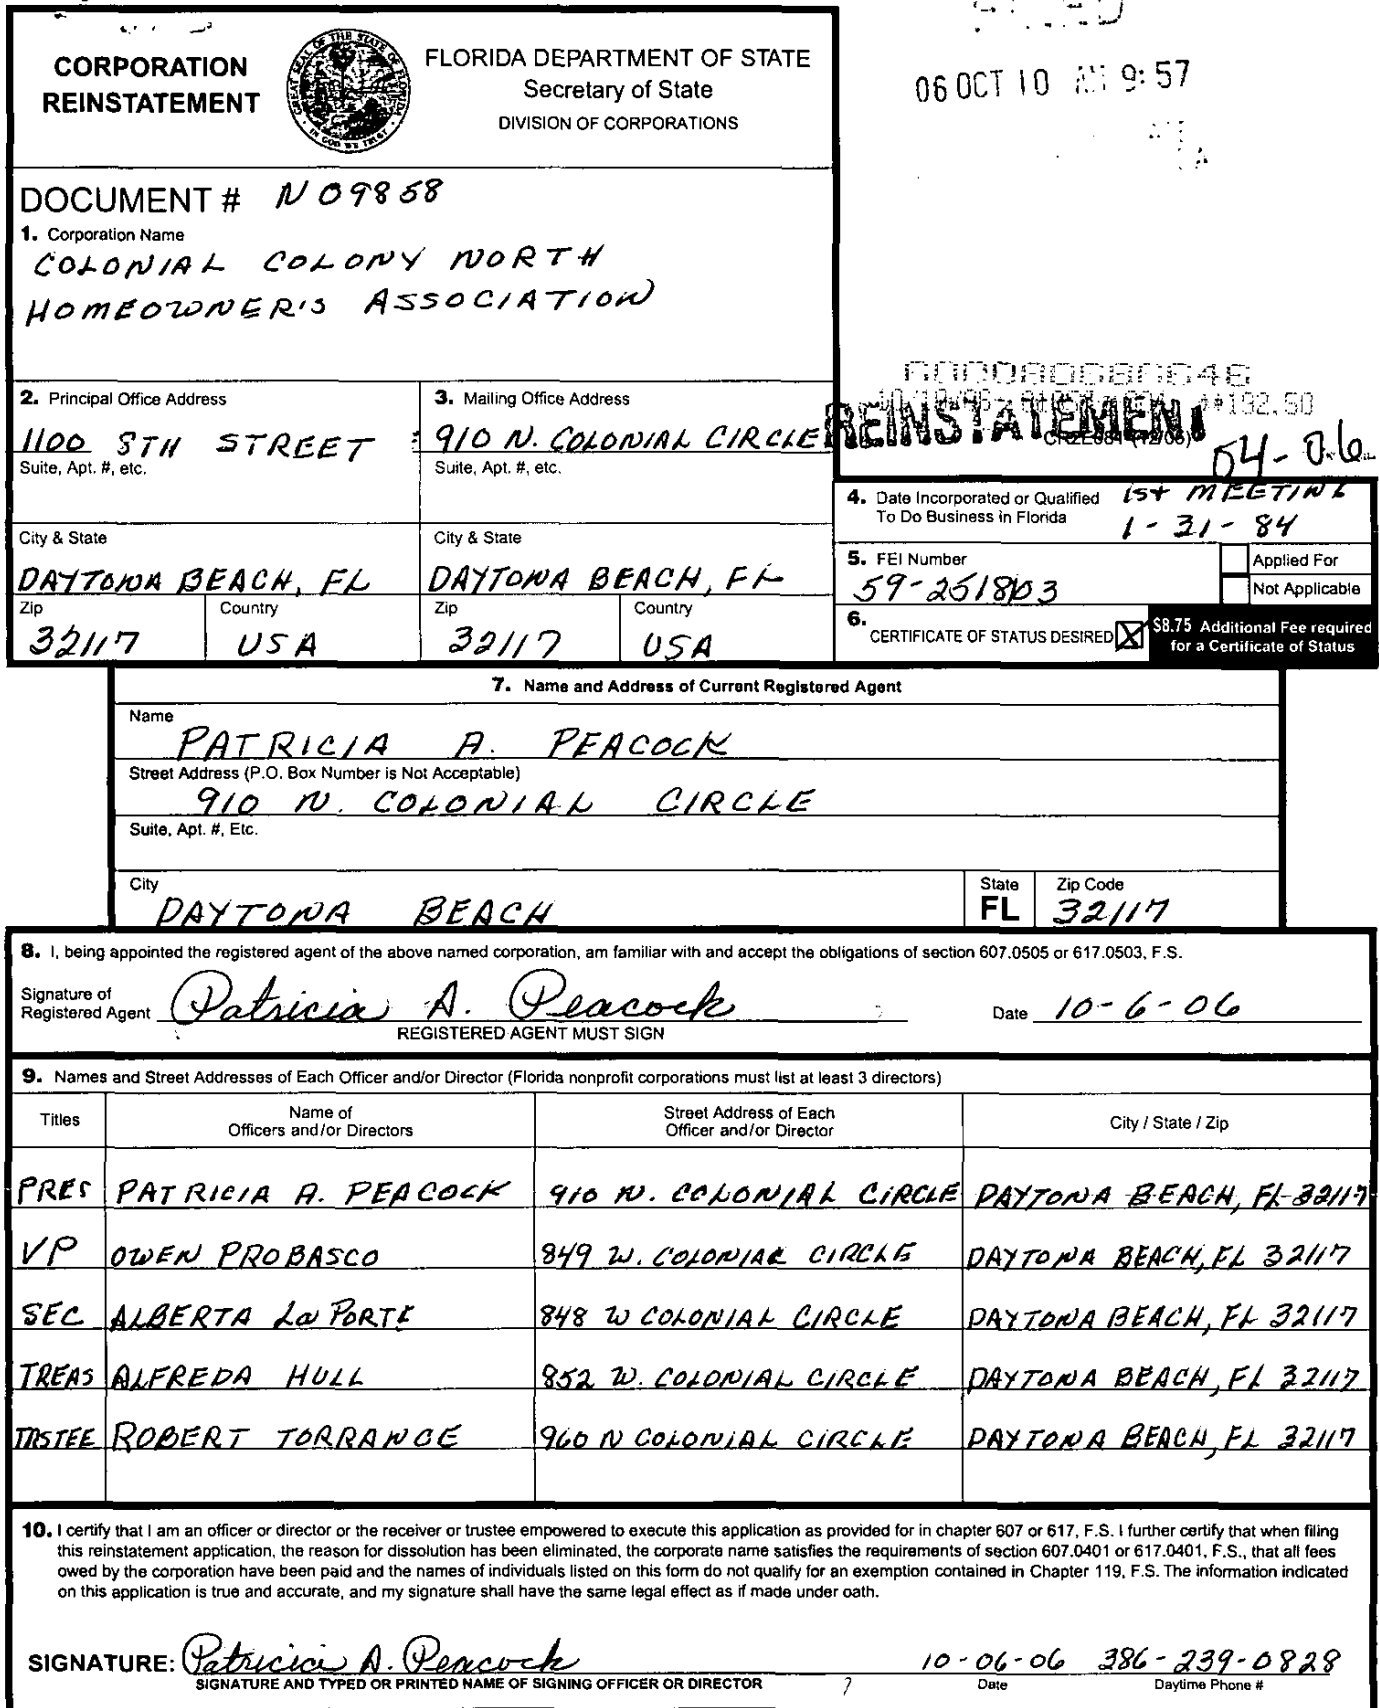 CORPORATION
REINSTATEMENT
FLORIDA DEPARTMENT OF STATE
Secretary of State
DIVISION OF CORPORATIONS
06 OCT 10 AM 9:57
DOCUMENT # N09858
1. Corporation Name
COLONIAL COLONY NORTH
HOMEOWNER'S ASSOCIATION
2. Principal Office Address
1100 8TH STREET
Suite, Apt. #, etc.
City & State
DAYTONA BEACH, FL
Zip 32117 Country USA
3. Mailing Office Address
910 N. COLONIAL CIRCLE
Suite, Apt. #, etc.
City & State
DAYTONA BEACH, FL
Zip 32117 Country USA
REINSTATEMENT
04-06
4. Date Incorporated or Qualified
To Do Business in Florida
1st MEETING
1-31-84
5. FEI Number
Applied For
Not Applicable
6. CERTIFICATE OF STATUS DESIRED X
$8.75 Additional Fee required
for a Certificate of Status
7. Name and Address of Current Registered Agent
Name
PATRICIA A. PEACOCK
Street Address (P.O. Box Number is Not Acceptable)
910 N. COLONIAL CIRCLE
Suite, Apt. #, Etc.
City State Zip Code
DAYTONA BEACH FL 32117
8. I, being appointed the registered agent of the above named corporation, am familiar with and accept the obligations of section 607.0505 or 617.0503, F.S.
Signature of
Registered Agent Patricia A. Peacock Date 10-6-06
REGISTERED AGENT MUST SIGN
9. Names and Street Addresses of Each Officer and/or Director (Florida nonprofit corporations must list at least 3 directors)
Titles Name of Officers and/or Directors Street Address of Each Officer and/or Director City / State / Zip
PRES PATRICIA A. PEACOCK 910 N. COLONIAL CIRCLE DAYTONA BEACH, FL 32117
VP OWEN PROBASCO 849 W. COLONIAL CIRCLE DAYTONA BEACH, FL 32117
SEC ALBERTA La PORTE 848 W COLONIAL CIRCLE DAYTONA BEACH, FL 32117
TREAS ALFREDA HULL 852 W. COLONIAL CIRCLE DAYTONA BEACH, FL 32117
TRSTEE ROBERT TORRANCE 960 N COLONIAL CIRCLE DAYTONA BEACH, FL 32117
10. I certify that I am an officer or director or the receiver or trustee empowered to execute this application as provided for in chapter 607 or 617, F.S. I further certify that when filing
this reinstatement application, the reason for dissolution has been eliminated, the corporate name satisfies the requirements of section 607.0401 or 617.0401, F.S., that all fees
owed by the corporation have been paid and the names of individuals listed on this form do not qualify for an exemption contained in Chapter 119, F.S. The information indicated
on this application is true and accurate, and my signature shall have the same legal effect as if made under oath.
SIGNATURE: Patricia A. Peacock 10-06-06 386-239-0828
SIGNATURE AND TYPED OR PRINTED NAME OF SIGNING OFFICER OR DIRECTOR Date Daytime Phone #